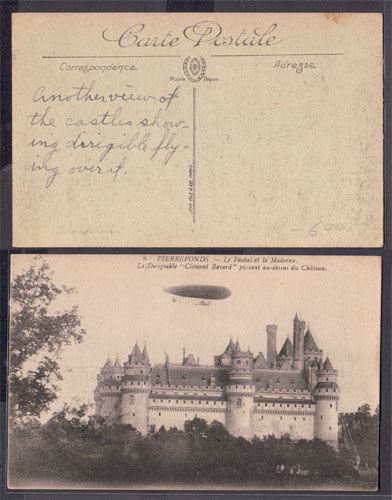 Carte Postale
Correspondance
Adresse
Modèle Déposé
Another view of
the castles show-
ing dirigible fly-
ing over it.
-600
8 PIERREFONDS — Le Féodal et le Moderne.
Le Dirigeable "Clément Bayard" passant au-dessus du Château.